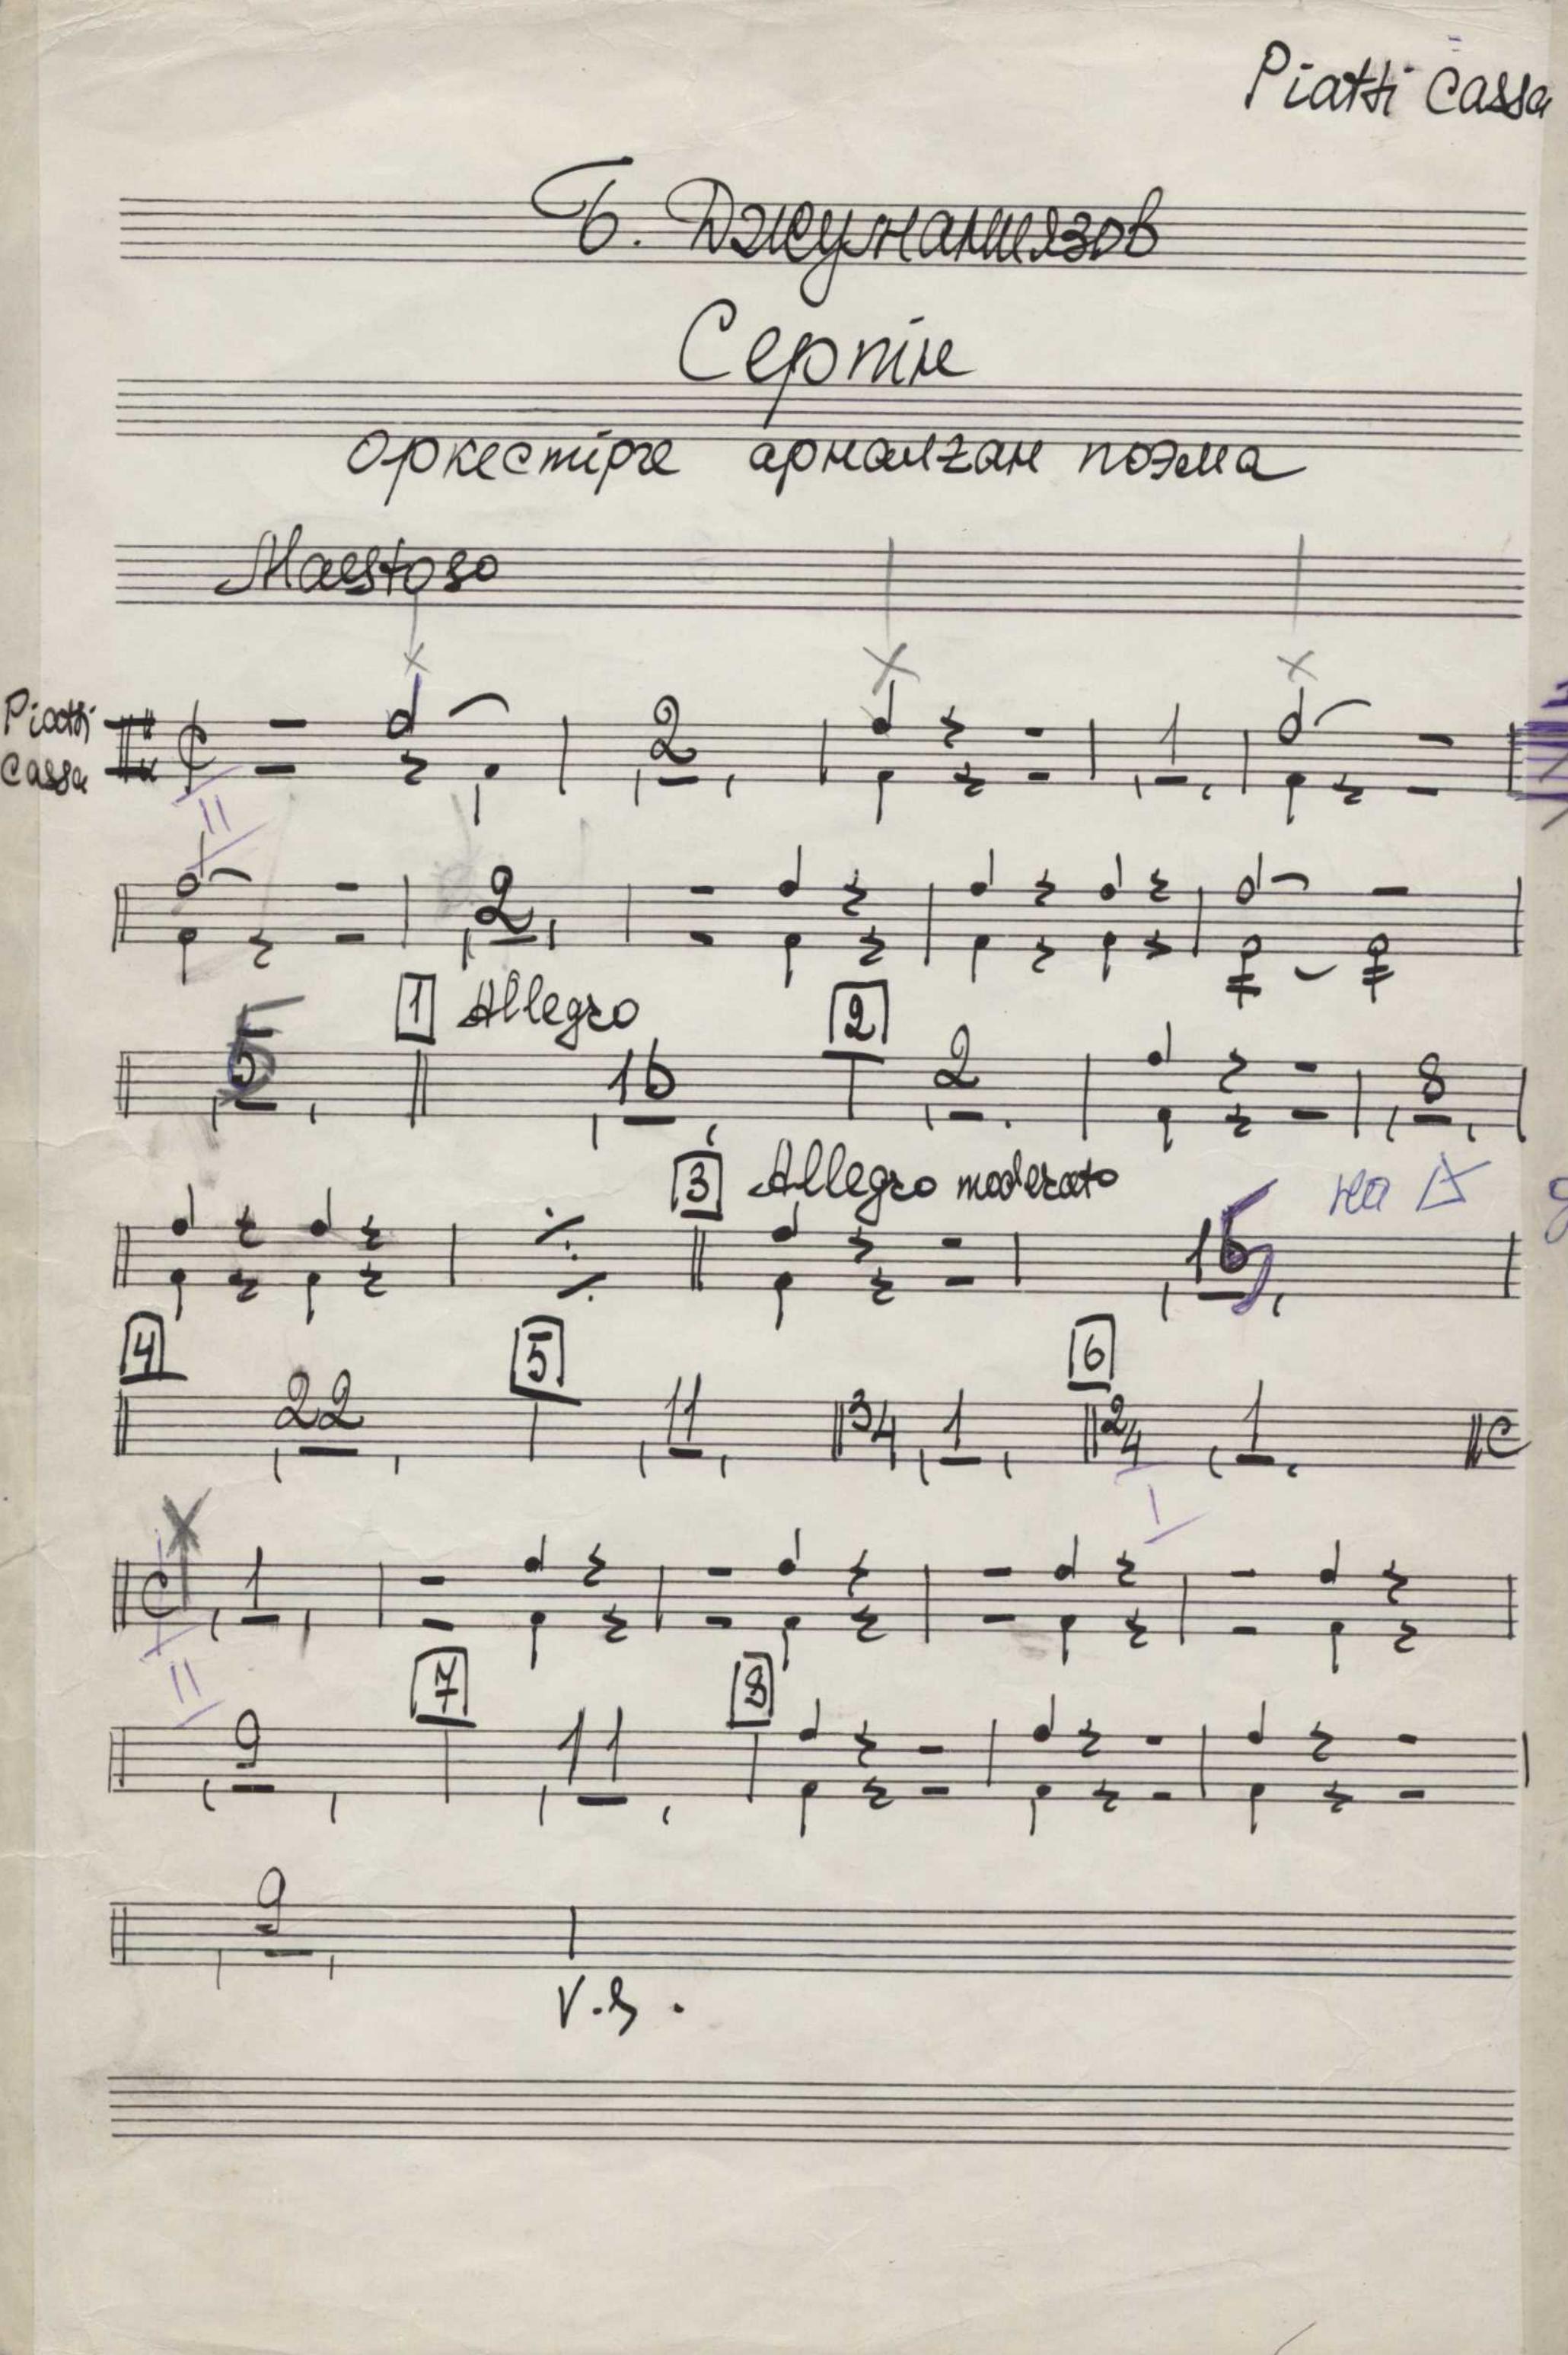 Piatti Cassa
Б. Джуманиязов
Серпін
оркестрге арналған поэма
Maestoso
Piatti
Cassa
2 1
II
2
1 Allegro 2
5 16 2 8
3 Allegro moderato на
16
4 5 6
22 11 3/4 1 2/4 1 C
I
1
II
7 8
9 11
9
V.S.